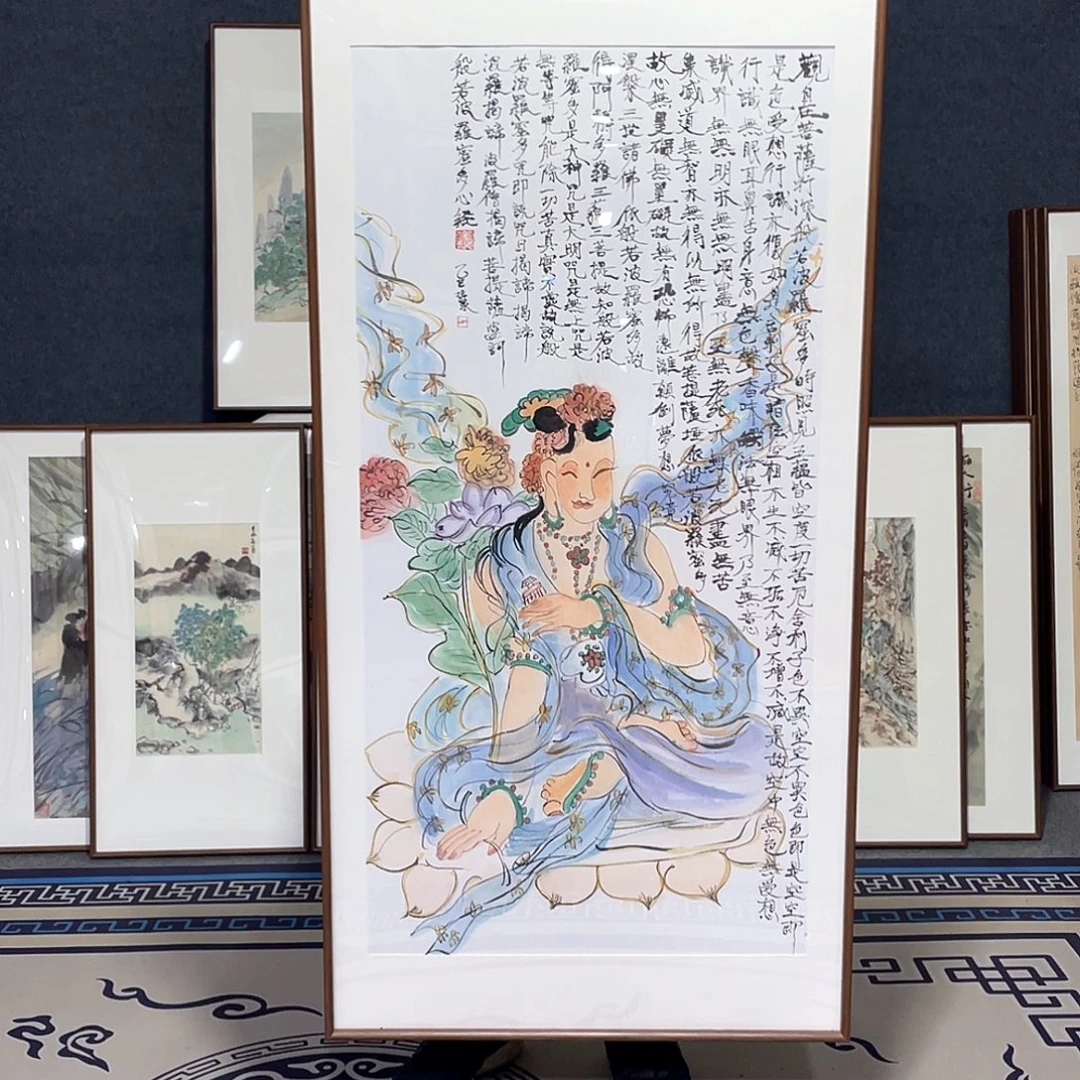 觀自在菩薩行深般若波羅蜜多時照見五蘊皆空度一切苦厄舍利子色不異空空不異色色即是空空即
是色受想行識亦復如是舍利子是諸法空相不生不滅不垢不淨不增不減是故空中無色無受想
行識無眼耳鼻舌身意無色聲香味觸法無眼界乃至無意
識界無無明亦無無明盡乃至無老死亦無老死盡無苦
集滅道無智亦無得以無所得故菩提薩埵依般若波羅蜜多
故心無罣礙無罣礙故無有恐怖遠離顛倒夢想究竟
涅槃三世諸佛依般若波羅蜜多故
得阿耨多羅三藐三菩提故知般若波
羅蜜多是大神咒是大明咒是無上咒是
無等等咒能除一切苦真實不虛故說般
若波羅蜜多咒即說咒曰揭諦揭諦
波羅揭諦 波羅僧揭諦 菩提薩婆訶
般若波羅蜜多心經